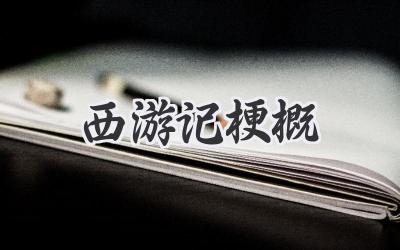 西游记梗概